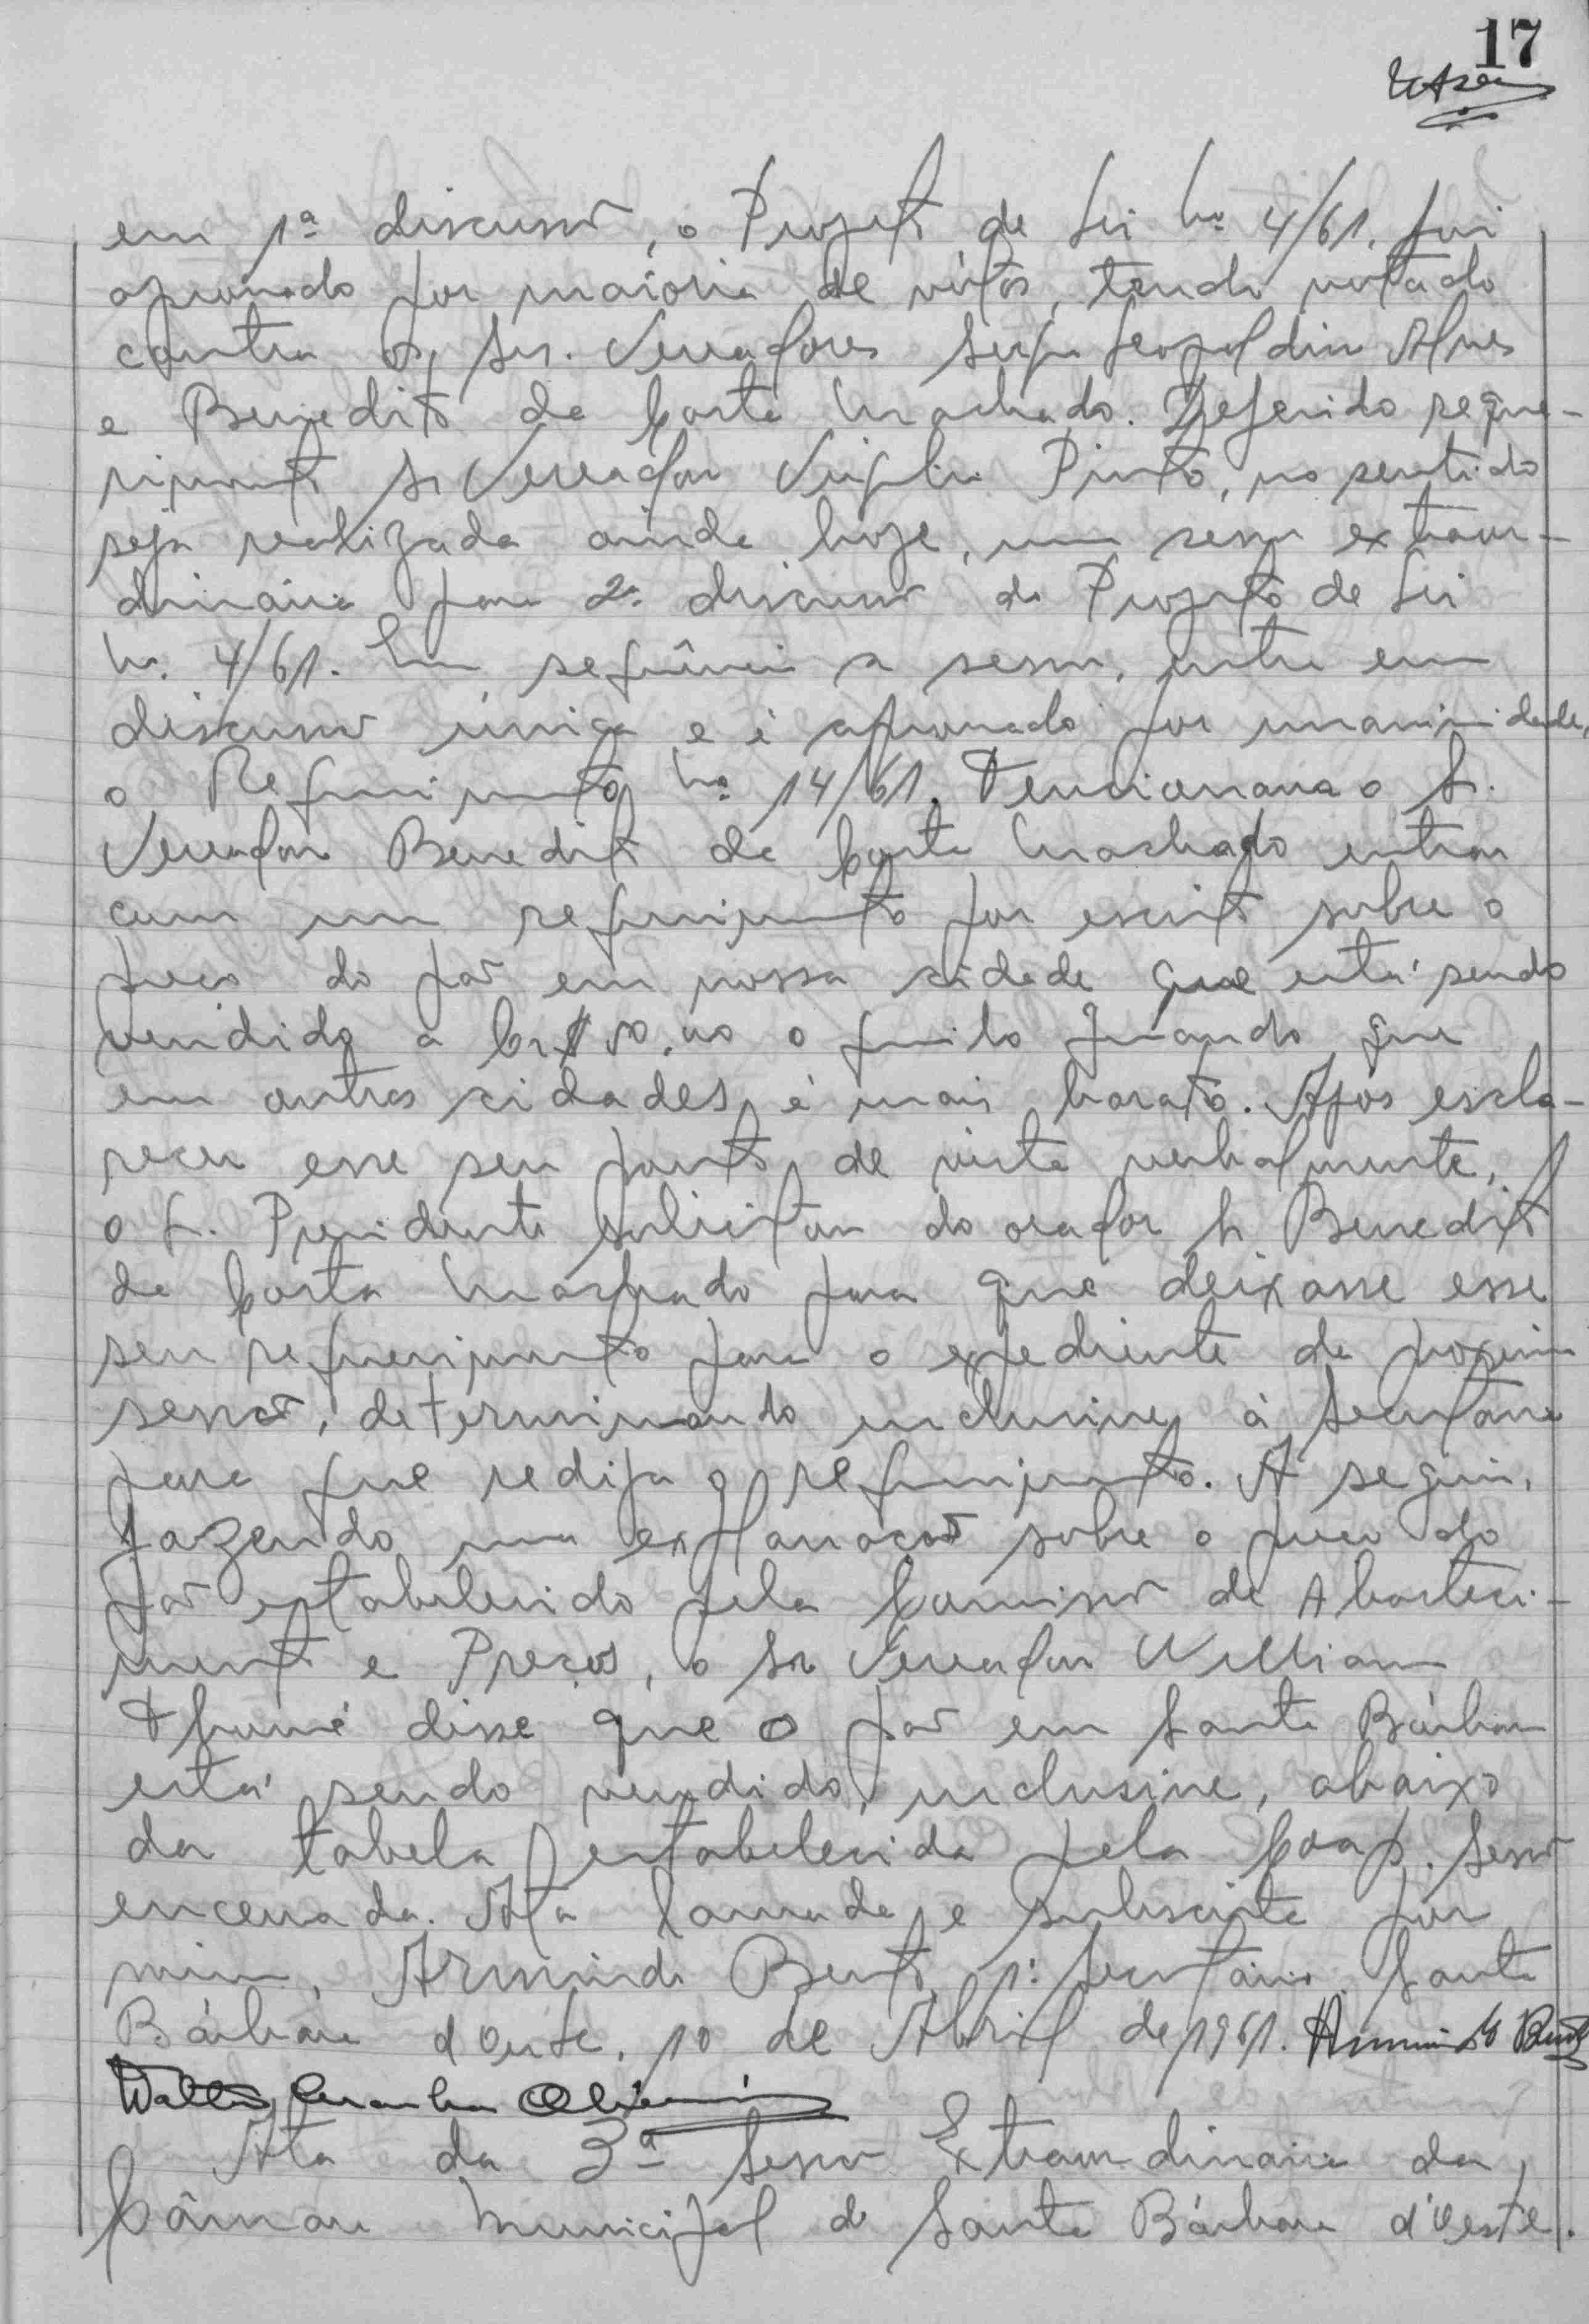 17
em 1ª discussão, o Projeto de Lei nº 4/61, foi
aprovado por maioria de vótos, tendo votado
contra os Srs. Vereadores Sergio Leopoldino Alves
e Benedito da Costa Machado. Deferido reque-
rimento Sr Vereador Virgilio Pinto, no sentido
seja realizada ainda hoje, uma sessão extraor-
dinária para 2ª discussão do Projeto de Lei
nº 4/61. Em sequência a sessão, entra em
discussão única e é aprovado por unanimidade,
o Requerimento nº 14/61. Tencionava o Sr.
Vereador Benedito da Costa Machado entrar
com um requerimento por escrito sobre o
preço do pão em nossa cidade que está sendo
vendido a Cr$ 50,00 o quilo quando que
em outras cidades é mais barato. Após escla-
recer esse seu ponto de vista verbalmente,
o Sr. Presidente solicitou do orador Sr Benedito
da Costa Machado para que deixasse esse
seu requerimento para o expediente da proxima
sessão, determinando inclusive à Secretaria
para que redija o requerimento. A seguir,
fazendo uma explanação sobre o preço do
pão estabelecido pela Comissão de Abasteci-
mento e Preços, o Sr Vereador William
disse que o pão em Santa Bárbara
está sendo vendido, inclusive, abaixo
da tabela estabelecida pela Coap. Sessão
encerrada. Ata lavrada e subscrita por
mim, Armindo Bento, 1º Secretário. Santa
Bárbara d'Oeste, 10 de Abril de 1961. Armindo Bento
Ata da 3ª Sessão Extraordinária da
Câmara Municipal de Santa Bárbara d'Oeste.